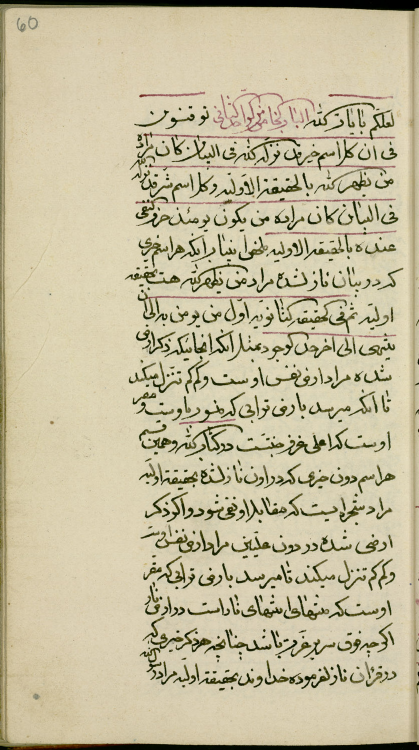 60
لعلکم بایات الله الباب الخامس من الواحد الثانی توقنون
فی ان کل اسم خیر قد نزل الله فی البیان کان مراده
من یظهره الله بالحقیقة الاولیة و کل اسم شر قد نزل
فی البیان کان مراده من یکون یومئذ حرف النفی
عنده بالحقیقة الاولیة ملخص این باب آنکه هر اسم خیری
که در بیان نازل شده مراد من یظهره الله هست بحقیقت
اولیه ثم فی الحقیقة الثانویة اول من یؤمن به الی ان
ینتهی الی اخر حد الوجود مثل آنکه اینجا که ذکر ارض
شده مراد ارض نفس اوست و کم کم تنزل میکند
تا آنکه میرسد بارض ترابی که او مقر
اوست که اعلی غرف جنت است در کتاب الله و همین قسم
هر اسم دون خیری که در او نازل شده بحقیقة اولیه
مراد شجره ایست که مقابل او نفی شود و اگر ذکر
ارض شده در دون علیین مراد ارض نفس اوست
و کم کم تنزل میکند تا میرسد بارض ترابی که مقر
اوست که منتهای نار است در ارض
اگرچه فوق سریر عزت باشد چنانچه هر ذکر خیری که
در قران نازل فرموده خداوند بحقیقة اولیه مراد رسول الله